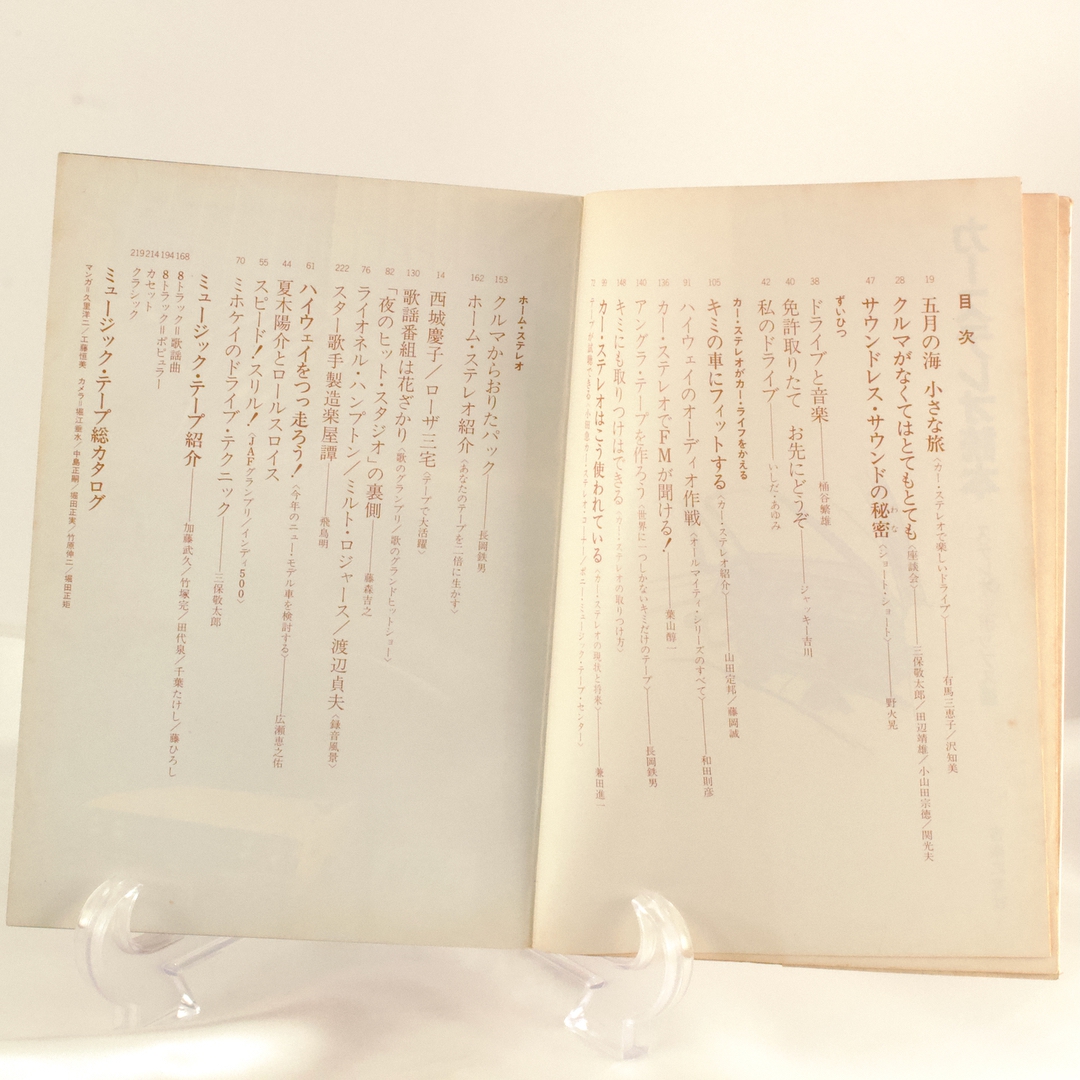 目次
19 五月の海 小さな旅〈カー・ステレオで楽しいドライブ〉――有馬三恵子／沢知美
28 クルマがなくてはとてもとても〈座談会〉――三保敬太郎／田辺靖雄／小山田宗徳／関光夫
47 サウンドレス・サウンドの秘密〈ショート・ショート〉――野火晃
わな
ずいひつ
38 ドライブと音楽――桶谷繁雄
40 免許取りたて お先にどうぞ――ジャッキー吉川
42 私のドライブ――いしだ・あゆみ
カー・ステレオがカー・ライフをかえる
105 キミの車にフィットする〈カー・ステレオ紹介〉――山田定邦／藤岡誠
91 ハイウェイのオーディオ作戦〈オールマイティ・シリーズのすべて〉――和田則彦
136 カー・ステレオでFMが聞ける！――葉山醇一
140 アングラ・テープを作ろう〈世界に一つしかないキミだけのテープ〉――長岡鉄男
148 キミにも取りつけはできる〈カー・ステレオの取りつけ方〉
99 カー・ステレオはこう使われている〈カー・ステレオの現状と将来〉――兼田進一
ホーム・ステレオ
153 クルマからおりたパック――長岡鉄男
162 ホーム・ステレオ紹介〈あなたのテープを二倍に生かす〉
14 西城慶子／ローザ三宅〈テープで大活躍〉
130 歌謡番組は花ざかり〈歌のグランプリ／歌のグランドヒットショー〉
82 「夜のヒット・スタジオ」の裏側――藤森吉之
76 ライオネル・ハンプトン／ミルト・ロジャース／渡辺貞夫〈録音風景〉
222 スター歌手製造楽屋譚――飛鳥明
61 ハイウェイをつっ走ろう！〈今年のニュー・モデル車を検討する〉――広瀬恵之佑
44 夏木陽介とロールスロイス
55 スピード！スリル！〈JAFグランプリ／インディ500〉
70 ミホケイのドライブ・テクニック――三保敬太郎
ミュージック・テープ紹介――加藤武久／竹塚完／田代泉／千葉たけし／藤ひろし
168 8トラック＝歌謡曲
194 8トラック＝ポピュラー
214 カセット
219 クラシック
ミュージック・テープ総カタログ
マンガ＝久里洋二／工藤恒美 カメラ＝堀江垂水／中島正嗣／堀田正実／竹原伸二／堀田正矩